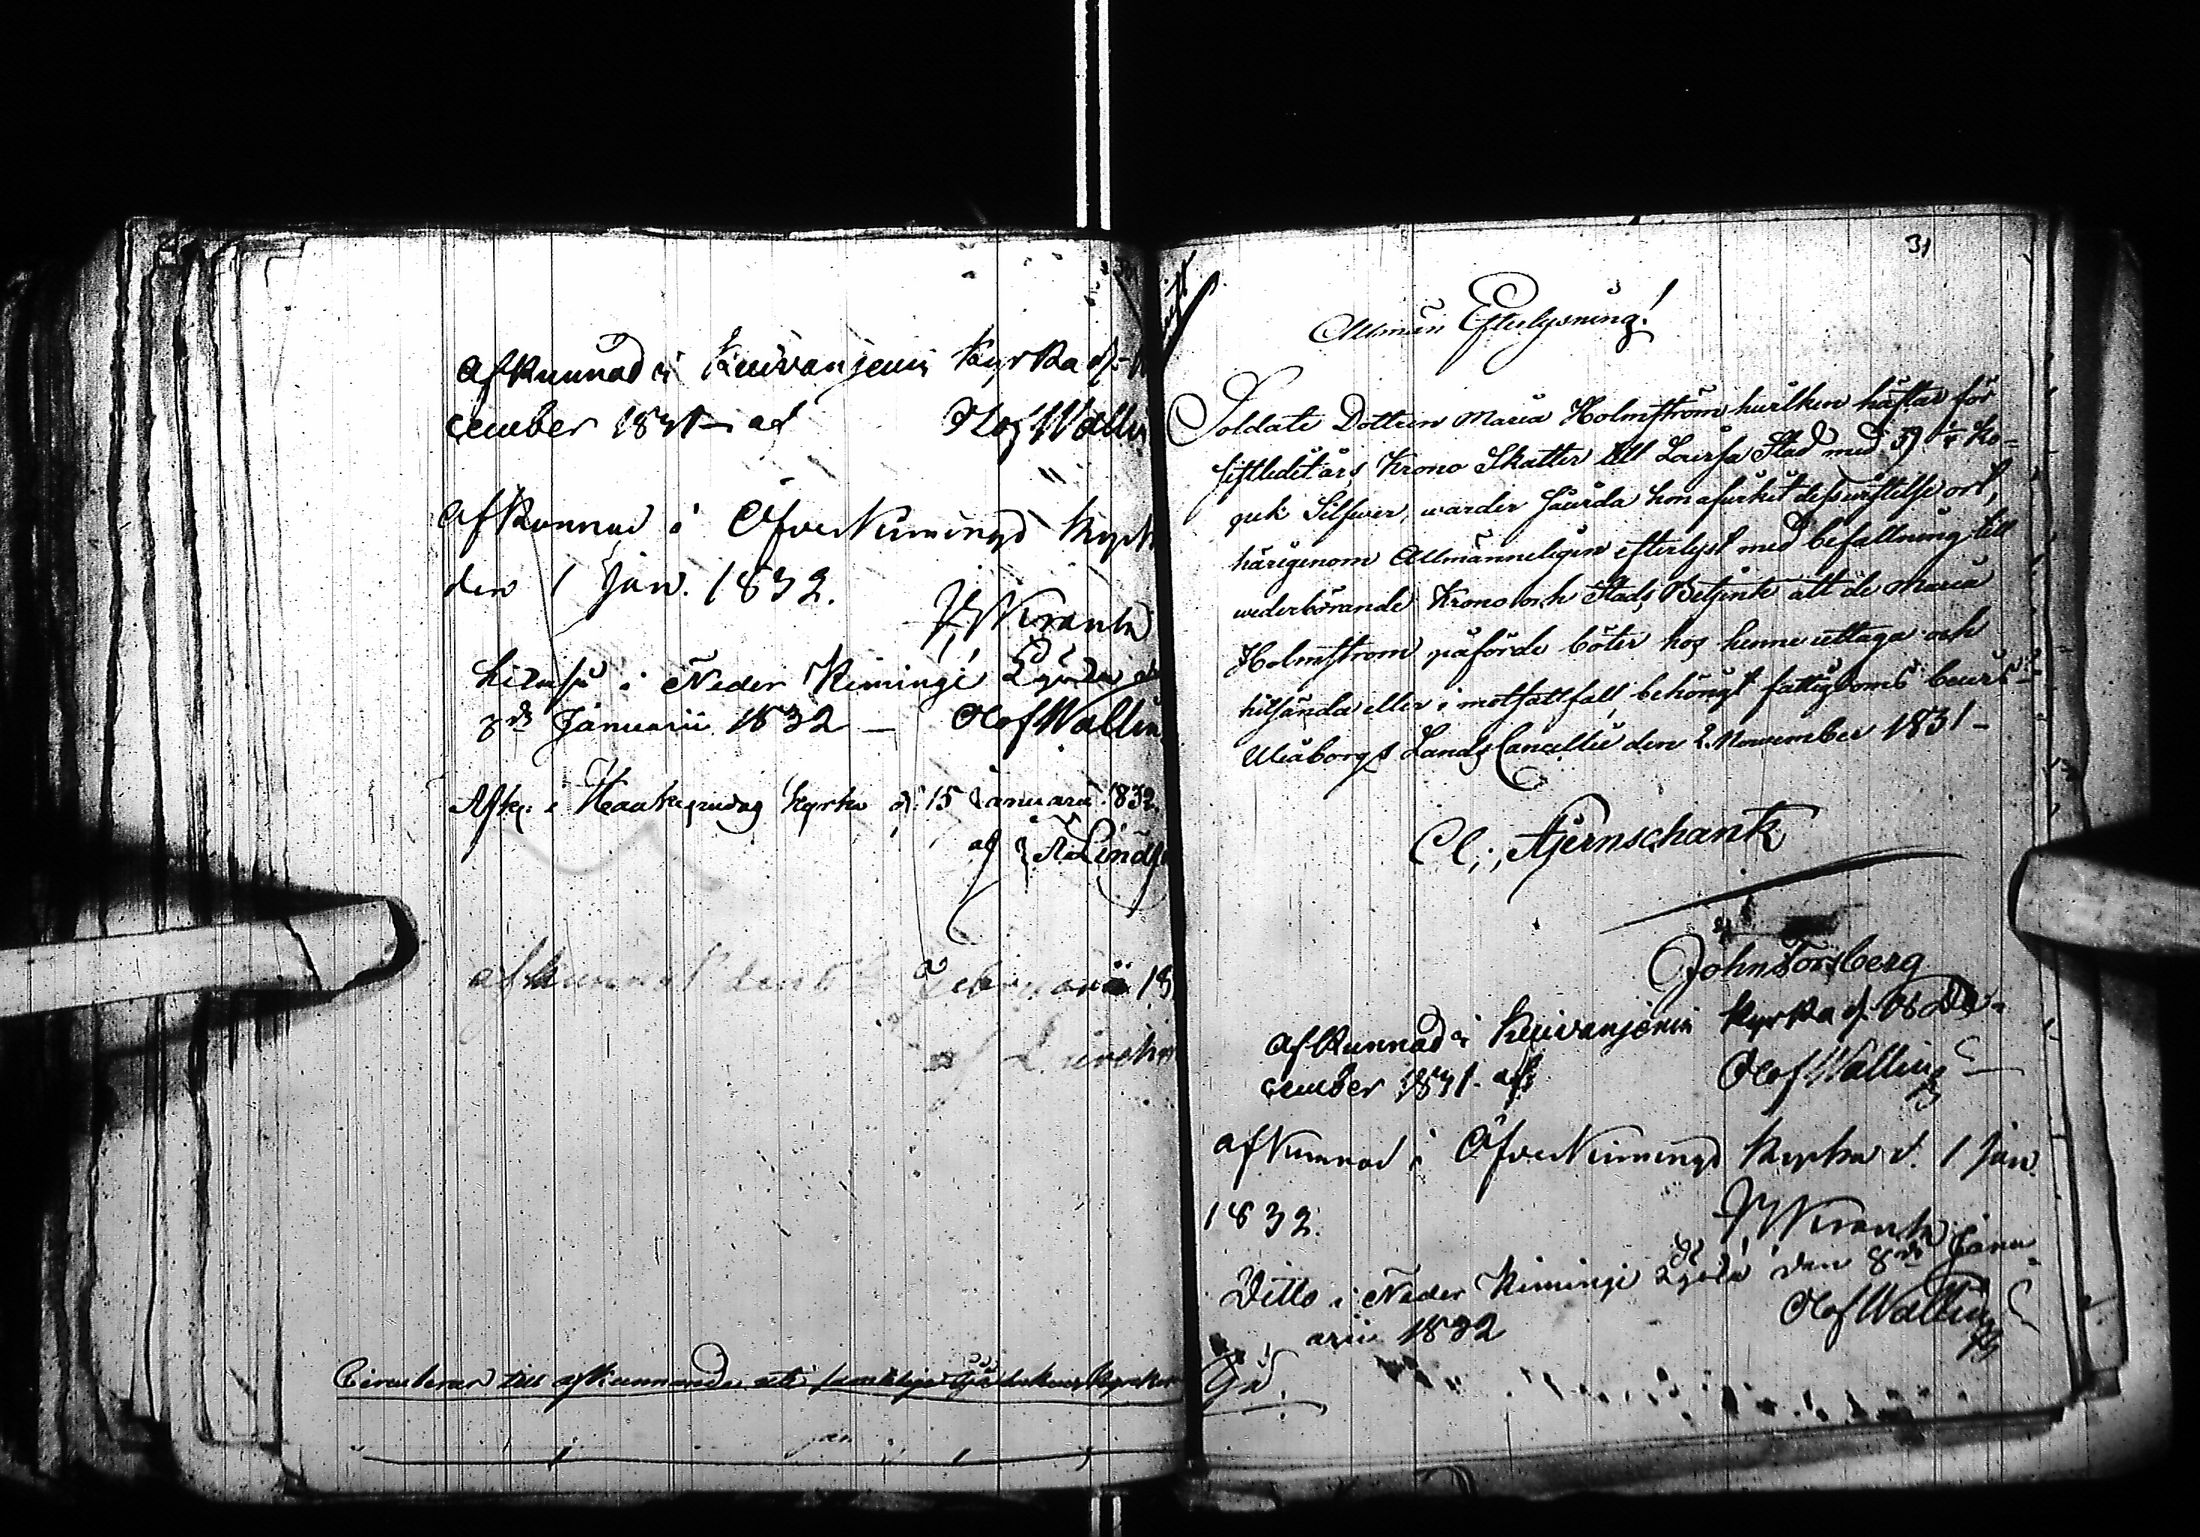 Afkunnad i Kuivanjemi Kyrka d.
cember 1831 af Olof Wallin
Afkunnad i Öfverkimingo Kyrk
den 1 Jan. 1832.
JWKranck
i Neder Kimingi
8de Januarii 1832 — Olof Wallin
Afk. i Haukipudas Kyrka d. 15 Januarii 1832
af Lind
afkunnat den Februarii 18
af
Circuleras till afkunnande uti samtelige Kyrkor
31
Allmän Efterlysning!
Soldate Dottren Maria Holmström hvilken häftar för
sistledet års Krono Skatter till Stad med 59 Ko-
pek Silfver, warder hon afvikit dess vistelse ort,
härigenom Allmänneligen efterlyst med befallning till
wederbörande Krono och Stads Betjente att de Maria
Holmström påförde böter hos henne uttaga och
hitsända eller i motsatt fall, behörigt fattigdoms bevis
Uleåborgs Lands Cancellie den 2. November 1831 —
Cl: Stjernschantz
John Forsberg
Afkunnad i Kuivanjemi Kyrka d. 18 De-
cember 1831 af Olof Wallin
Afkunnad i Öfverkimingo Kyrka d. 1 Jan.
1832.
JWKranck
Ditto i Neder Kimingi den 8de Janu
arii 1832 Olof Wallin